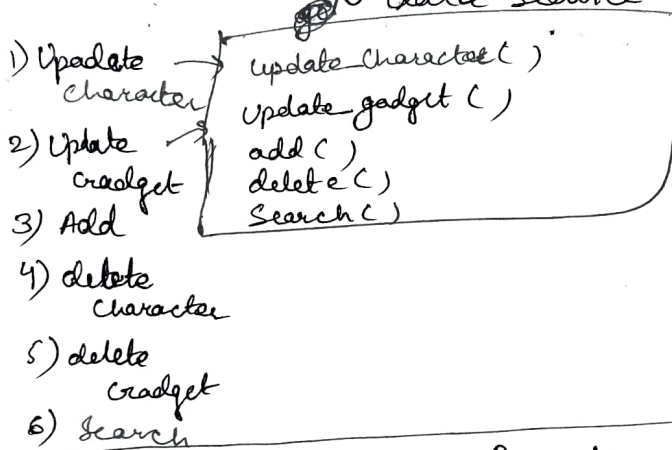 1) Upadate
character
2) Update
Gradget
3) Add
4) delete
Character
5) delete
Gradget
6) Search
update_Character( )
update_gadget ( )
add ( )
delete ( )
Search ( )